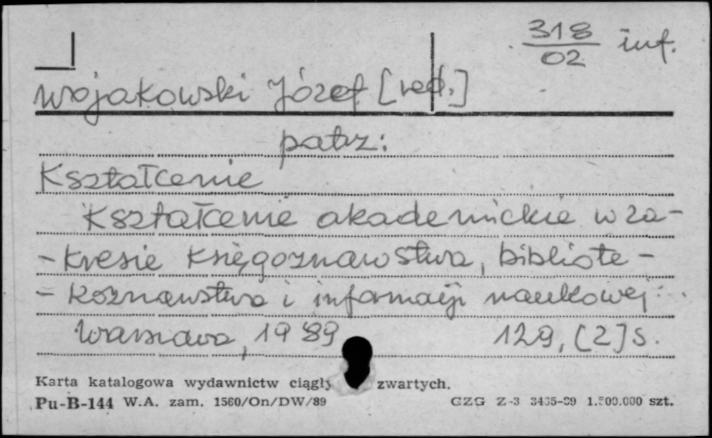 318
02 inf.
Wojakowski Józef [red.]
patrz:
Kształcenie
Kształcenie akademickie w za-
- kresie księgoznawstwa, bibliote-
- koznawstwa i informacji naukowej.
Warszawa, 1989 129, [2] s.
Karta katalogowa wydawnictw ciągły zwartych.
Pu-B-144 W.A. zam. 1560/On/DW/89 CZG Z-3 3435-89 1.500.000 szt.